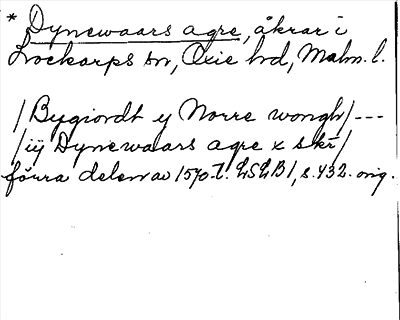 * Dynewaars agre, åkrar i
Lockarps sn, Oxie hd, Malm. l.
/Bygiordt y Norre wongh/---
/iij Dynewaars agre x skr/
förra delen av 1570-t. LSLB1, s. 432. orig.